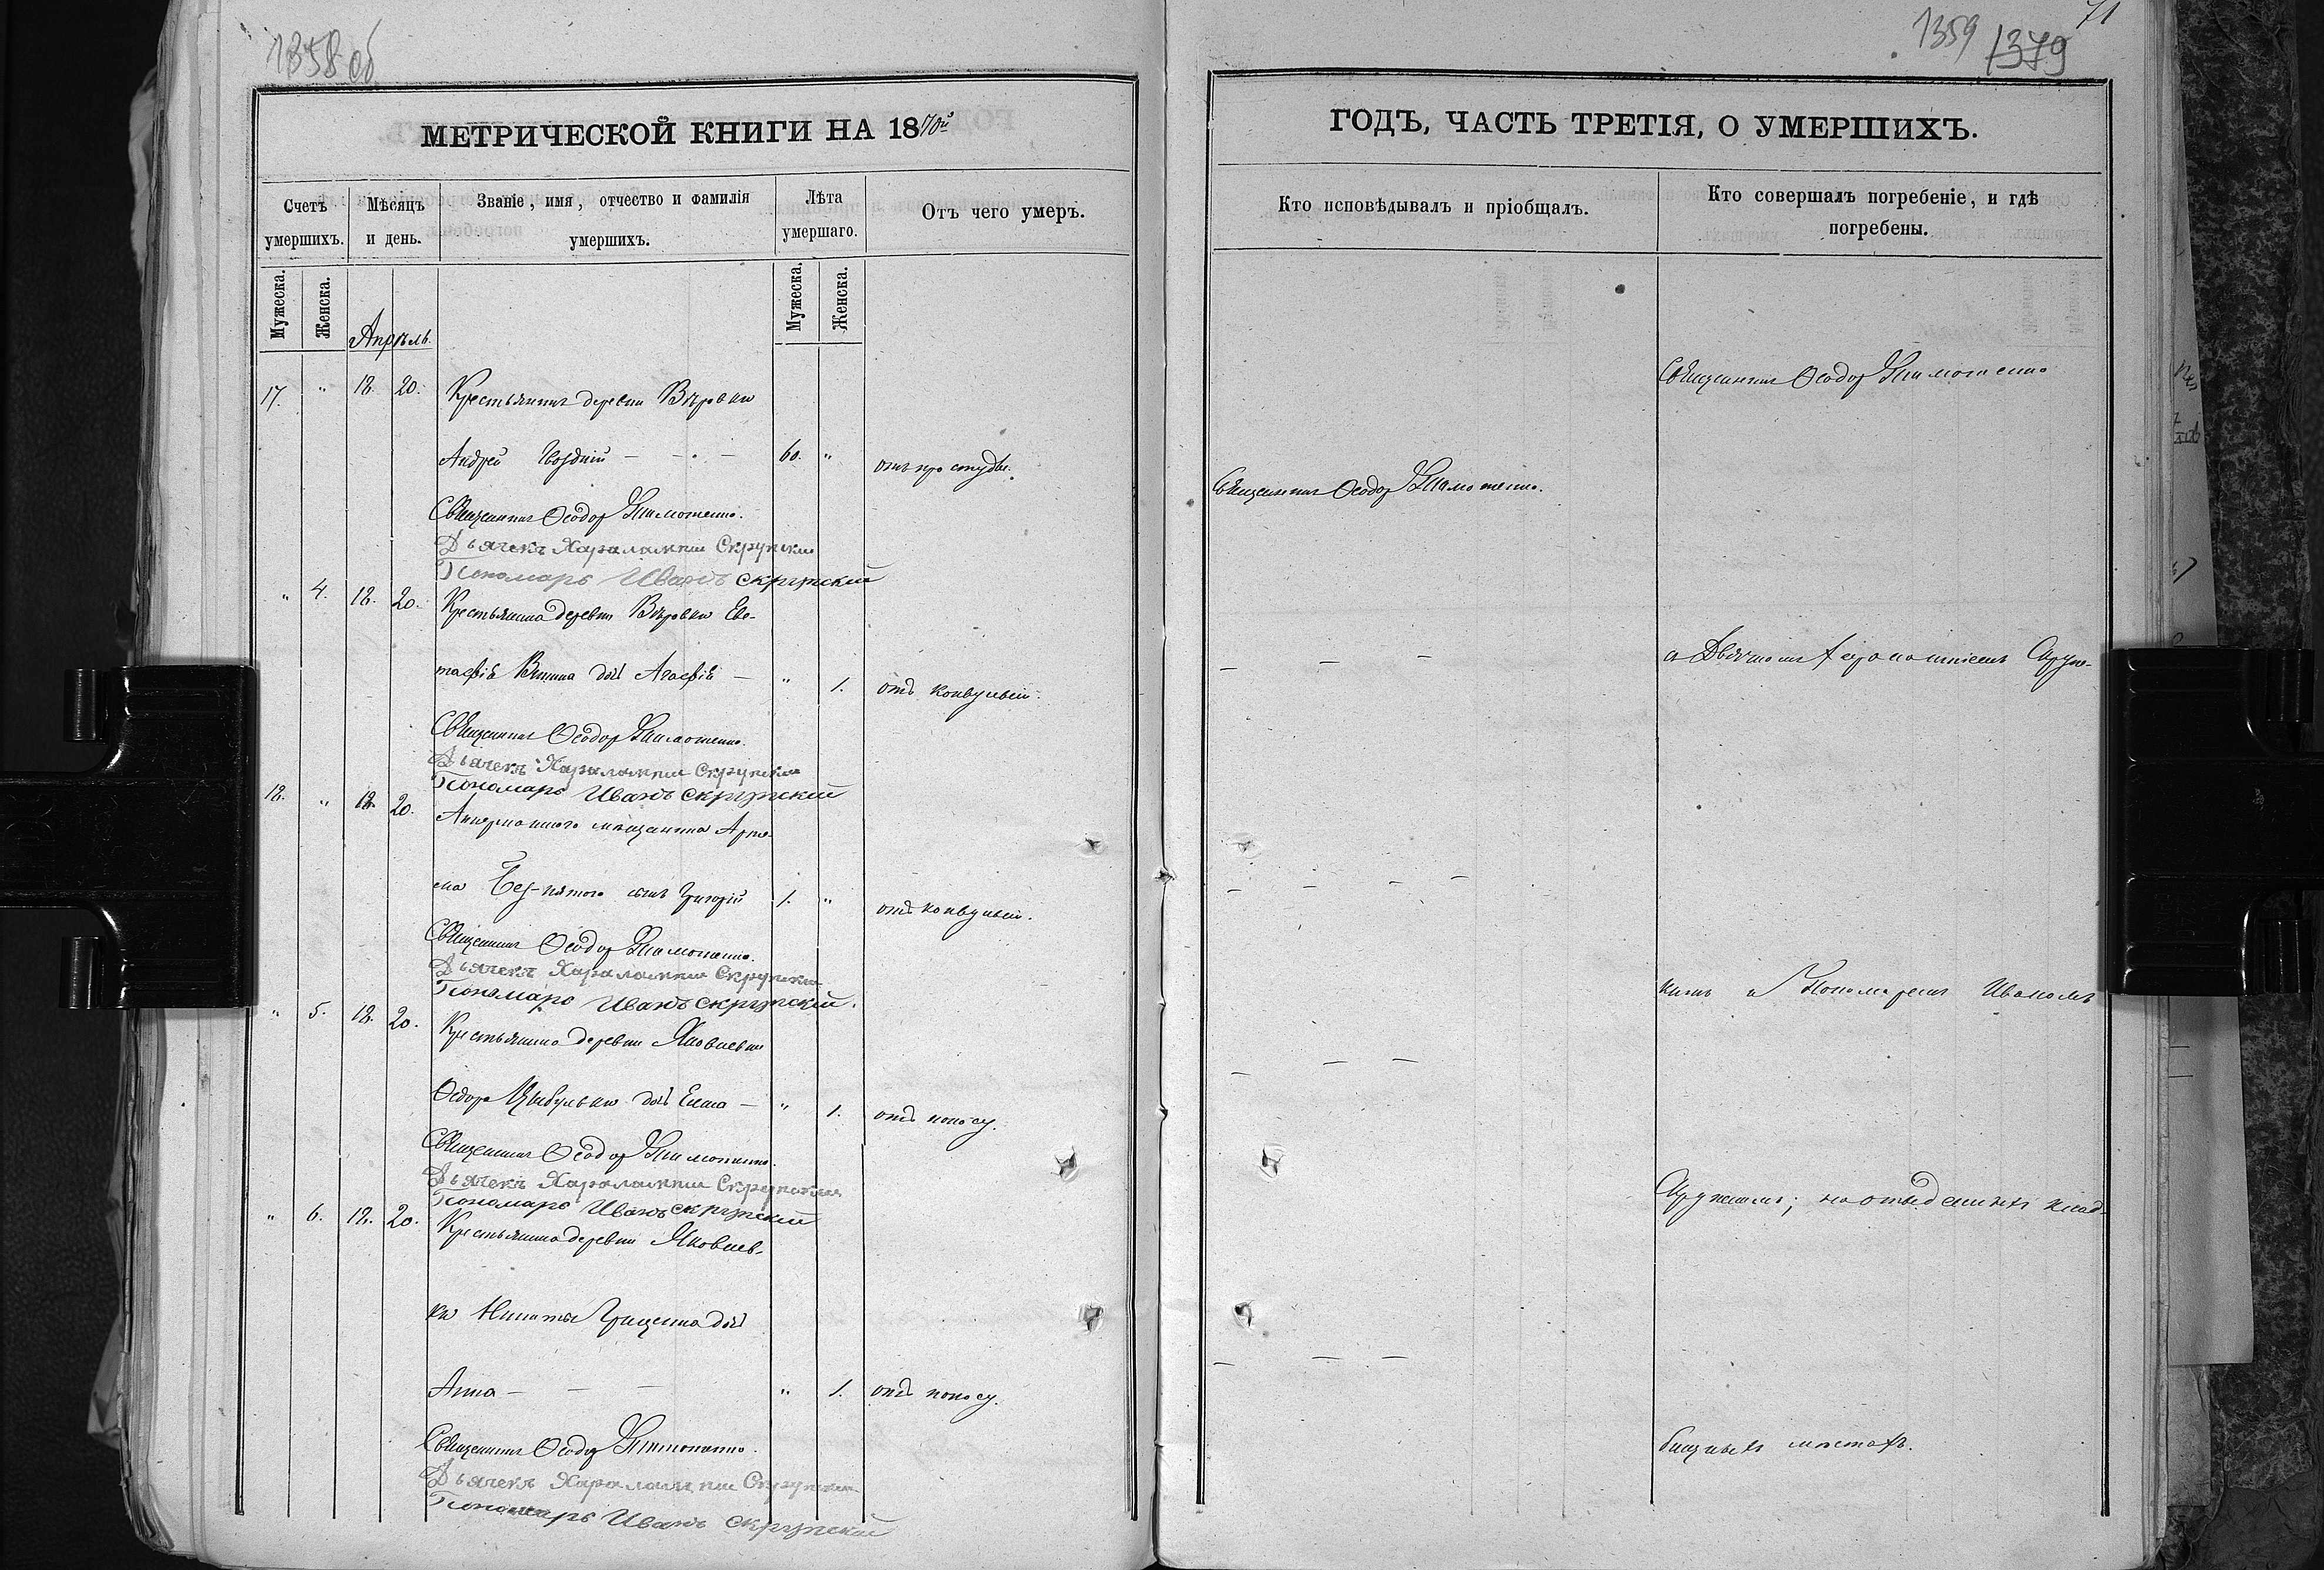 1358 об
МЕТРИЧЕСКОЙ КНИГИ НА 1870й
Счетъ умершихъ.
Мѣсяцъ и день.
Званіе, имя, отчество и фамилія умершихъ.
Лѣта умершаго.
Отъ чего умеръ.
Мужеска.
Женска.
Мужеска.
Женска.
Апрѣль
17. " 18. 20. Крестьянинъ деревни Вѣровки
Андрей Гвоздій 60. " отъ простуды.
Священникъ Ѳеодоръ
Дьячекъ Харалампій Скрупскій
Пономарь Иванъ Скрупскій
" 4. 18. 20. Крестьянина деревни Вѣровки Евс-
тафія дочь Агафія " 1. отъ конвульсій.
Священникъ Ѳеодоръ
Дьячекъ Харалампій Скрупскій
Пономарь Иванъ Скрупскій
18. " 18. 20. Аккерманского мѣщанина Арте-
ма Без-пятого сынъ Григорій 1. " отъ конвульсій.
Священникъ Ѳеодоръ
Дьячекъ Харалампій Скрупскій
Пономарь Иванъ Скрупскій.
" 5. 18. 20. Крестьянина деревни Яковлевки
Ѳедора Цыбульки дочь Елена " 1. отъ поносу.
Священникъ Ѳеодоръ
Дьячекъ Харалампій Скрупскій
Пономарь Иванъ Скрупскій
" 6. 18. 20. Крестьянина деревни Яковлев-
ки Никиты Грищенка дочь
Анна " 1. отъ поносу.
Священникъ Ѳеодоръ
Дьячекъ Харалампій Скрупскій
Пономарь Иванъ Скрупскій
71
1359 1379
ГОДЪ, ЧАСТЬ ТРЕТІЯ, О УМЕРШИХЪ.
Кто исповѣдывалъ и пріобщалъ.
Кто совершалъ погребеніе, и гдѣ погребены.
Священникъ Ѳеодоръ
Священникъ Ѳеодоръ
съ Дьячкомъ Харалампіемъ Скруп-
скимъ и Пономаремъ Иваномъ
Скрупскимъ; на отведенныхъ клад-
бищныхъ мѣстахъ.